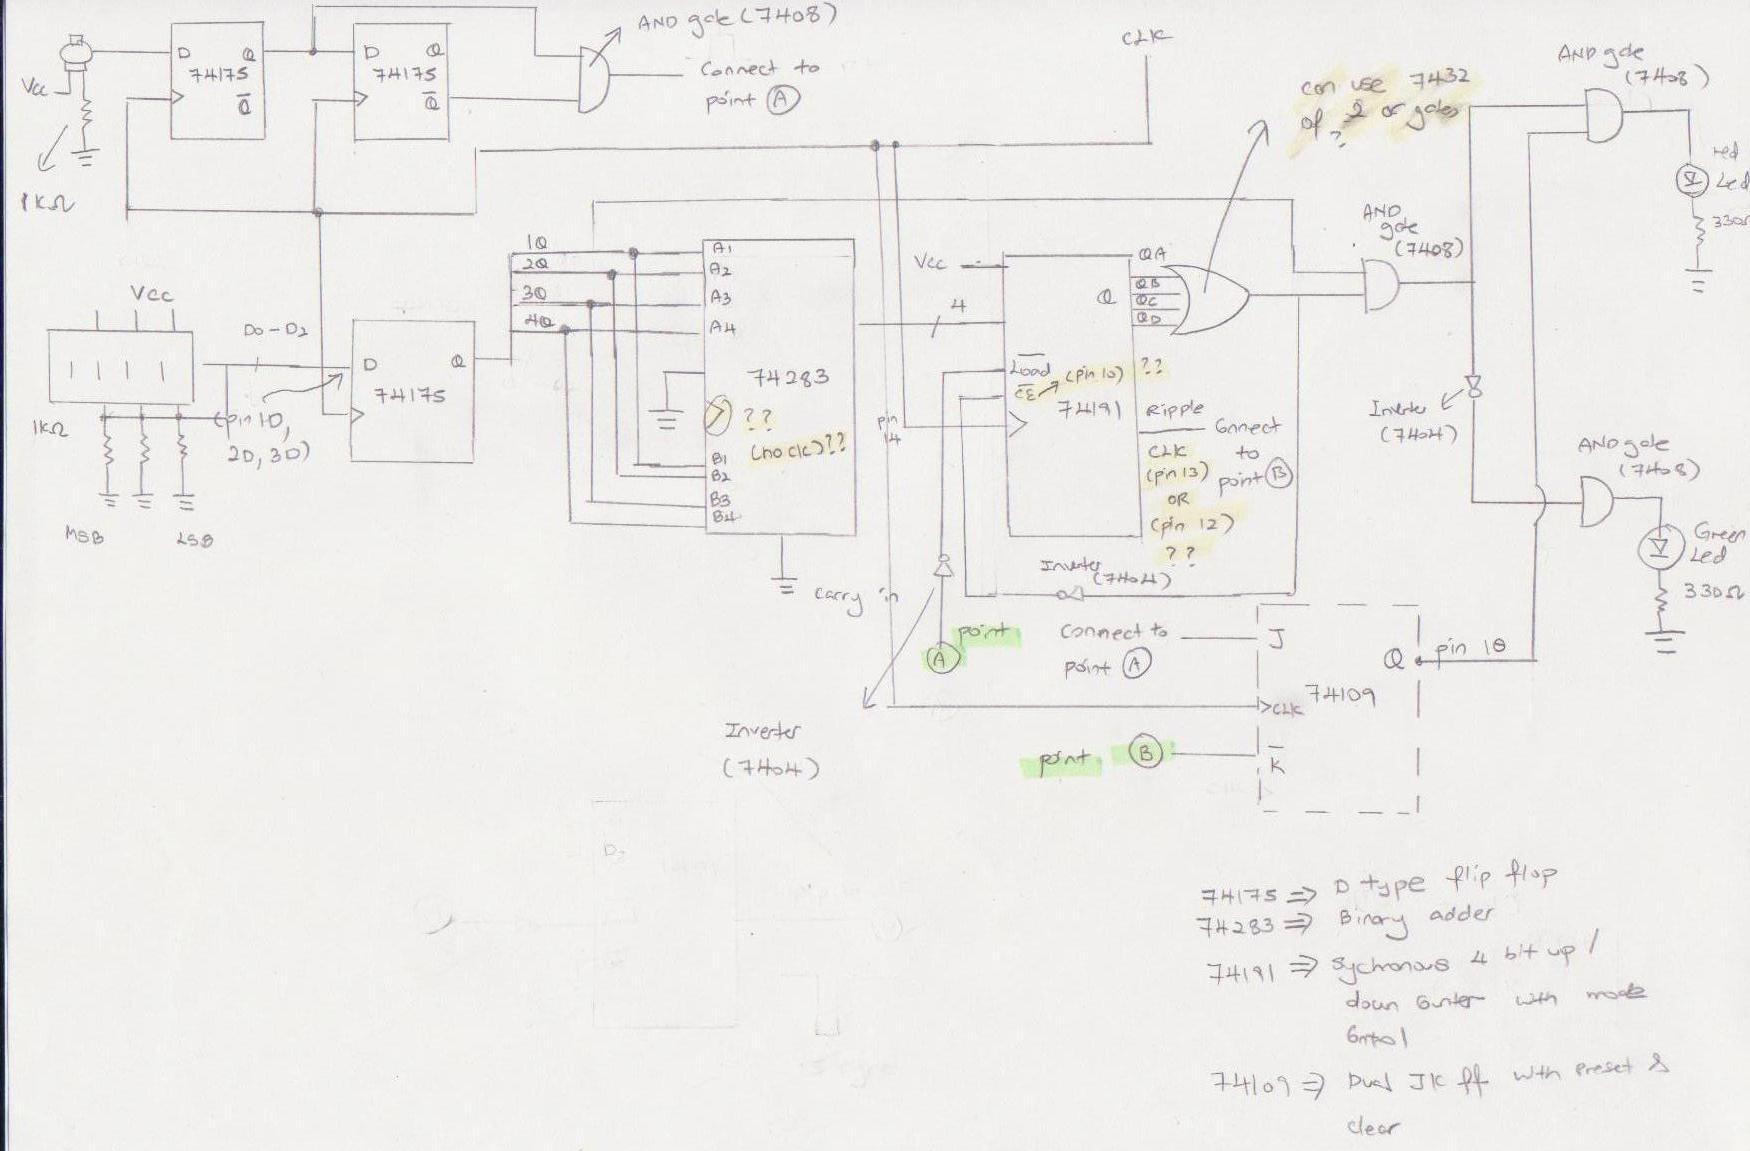 AND gate (7408)
Connect to
point A
D Q
74175
Q̅
D Q
74175
Q̅
Vcc
1KΩ
CLK
can use 7432
of 2 or gates
?
AND gate
(7408)
red
Led
330Ω
AND
gate
(7408)
Inverter
(7404)
AND gate
(7408)
Green
Led
330Ω
Vcc
D0-D2
1KΩ
(pin 1D,
2D, 3D)
MSB LSB
D Q
74175
1Q
2Q
3Q
4Q
A1
A2
A3
A4
74283
??
(no clk)??
B1
B2
B3
B4
carry in
Vcc
4
pin
14
QA
Q QB
QC
QD
Load
CE (pin 10) ??
74191
Ripple
CLK
(pin 13)
OR
(pin 12)
??
Connect
to
point B
Inverter
(7404)
point
A
Connect to
point A
Inverter
(7404)
point B
J
Q pin 10
74109
CLK
K̅
74175 => D type flip flop
74283 => Binary adder
74191 => Sychronous 4 bit up /
down counter with mode
control
74109 => Dual JK ff with preset &
clear